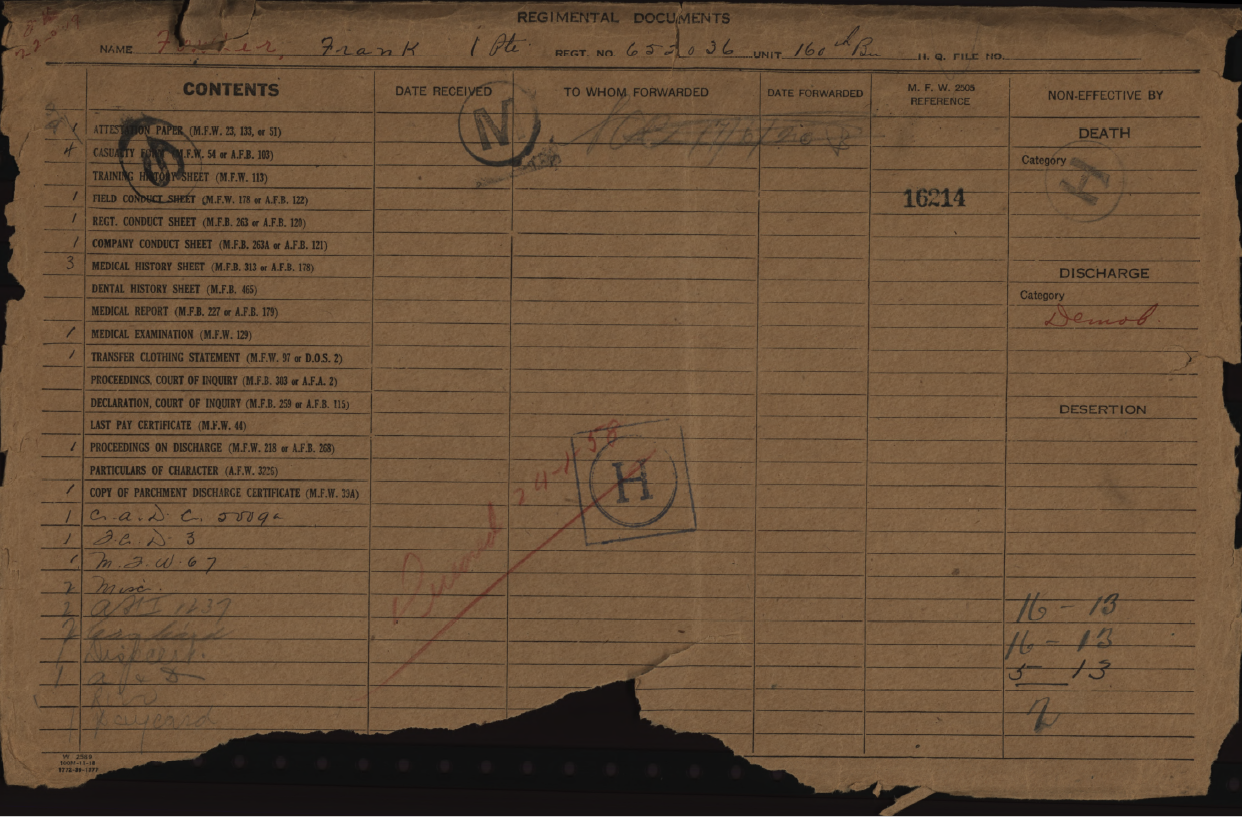 REGIMENTAL DOCUMENTS
NAME Frank Pte. REGT. NO. 652036 UNIT 160th Bn H. Q. FILE NO.
CONTENTS DATE RECEIVED TO WHOM FORWARDED DATE FORWARDED M. F. W. 2505 REFERENCE NON-EFFECTIVE BY
N
1 ATTESTATION PAPER (M.F.W. 23, 133, or 51) DEATH
4 CASUALTY FORM (M.F.W. 54 or A.F.B. 103) Category
TRAINING HISTORY SHEET (M.F.W. 113) H
1 FIELD CONDUCT SHEET (M.F.W. 178 or A.F.B. 122) 16214
1 REGT. CONDUCT SHEET (M.F.B. 263 or A.F.B. 120)
1 COMPANY CONDUCT SHEET (M.F.B. 263A or A.F.B. 121)
3 MEDICAL HISTORY SHEET (M.F.B. 313 or A.F.B. 178) DISCHARGE
DENTAL HISTORY SHEET (M.F.B. 465) Category
MEDICAL REPORT (M.F.B. 227 or A.F.B. 179) Demob.
1 MEDICAL EXAMINATION (M.F.W. 129)
1 TRANSFER CLOTHING STATEMENT (M.F.W. 97 or D.O.S. 2)
PROCEEDINGS, COURT OF INQUIRY (M.F.B. 303 or A.F.A. 2)
DECLARATION, COURT OF INQUIRY (M.F.B. 259 or A.F.B. 115) DESERTION
LAST PAY CERTIFICATE (M.F.W. 44)
1 PROCEEDINGS ON DISCHARGE (M.F.W. 218 or A.F.B. 268)
PARTICULARS OF CHARACTER (A.F.W. 3226)
H
24-1-58
1 COPY OF PARCHMENT DISCHARGE CERTIFICATE (M.F.W. 39A)
1 C.A.D.C. 5009a
1 D. 3
1 M.F.W. 67
2 Misc.
2 1237 16 - 13
16 - 13
1 5 13
2